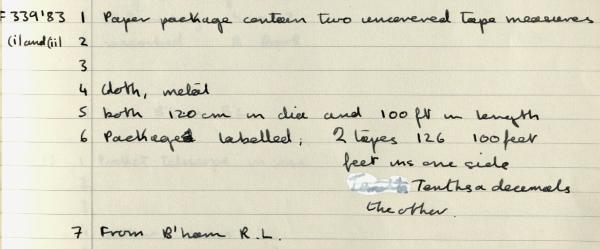 F339'83 1 Paper package contain two uncovered tape measures
(i) and (ii) 2
3
4 cloth, metal
5 both 120cm in dia and 100ft in length
6 Package labelled; 2 tapes 126 100 feet
feet ins one side
Tenths a decemals
the other.
7 From B'ham R.L.